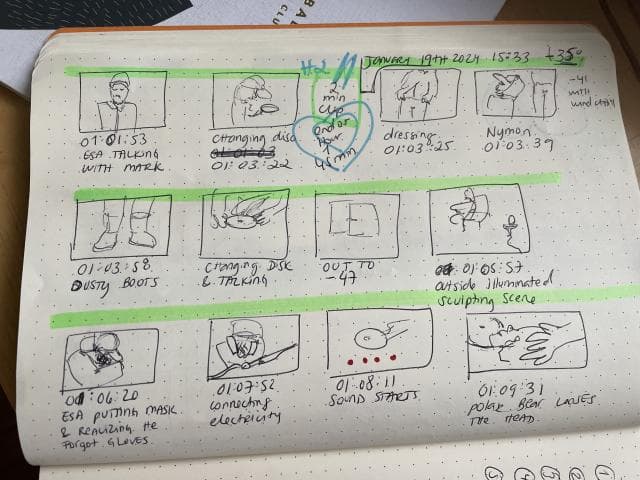 BAL
CLU
JANUARY 19TH 2024 15:33 +35°
-41
with
wind chill
#2
2
min
clip
end of
hour
1
45 min
01:01:53
ESA TALKING
WITH MARK
Changing disc
01:03:22
dressing
01:03:25
Nymon
01:03:39
01:03:58
DUSTY BOOTS
Changing DISK
& TALKING
OUT TO
-47
01:05:57
outside illuminated
sculpting scene
01:06:20
ESA PUTTING MASK
& REALIZING HE
Forgot GLOVES
01:07:52
connecting
electricity
01:08:11
SOUND STARTS
01:09:31
polar Bear LOOSES
THE HEAD